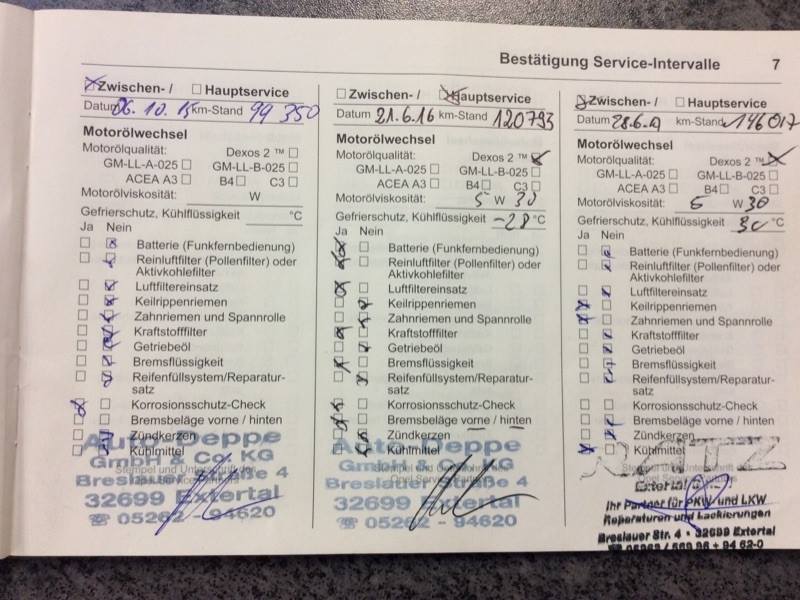 Bestätigung Service-Intervalle 7
Zwischen- / Hauptservice
Datum 06.10.15 km-Stand 99 350
Motorölwechsel
Motorölqualität: Dexos 2 ™
GM-LL-A-025 GM-LL-B-025
ACEA A3 B4 C3
Motorölviskosität: W
Gefrierschutz, Kühlflüssigkeit °C
Ja Nein
Batterie (Funkfernbedienung)
Reinluftfilter (Pollenfilter) oder
Aktivkohlefilter
Luftfiltereinsatz
Keilrippenriemen
Zahnriemen und Spannrolle
Kraftstofffilter
Getriebeöl
Bremsflüssigkeit
Reifenfüllsystem/Reparatur-
satz
Korrosionsschutz-Check
Bremsbeläge vorne / hinten
Zündkerzen
Kühlmittel
Auto Deppe
GmbH & Co. KG
Stempel und Unterschrift des
Breslauer Straße 4
32699 Extertal
☎ 05262 - 94620
Zwischen- / Hauptservice
Datum 21.6.16 km-Stand 120793
Motorölwechsel
Motorölqualität: Dexos 2 ™
GM-LL-A-025 GM-LL-B-025
ACEA A3 B4 C3
Motorölviskosität: 5 W 30
Gefrierschutz, Kühlflüssigkeit -28 °C
Ja Nein
Batterie (Funkfernbedienung)
Reinluftfilter (Pollenfilter) oder
Aktivkohlefilter
Luftfiltereinsatz
Keilrippenriemen
Zahnriemen und Spannrolle
Kraftstofffilter
Getriebeöl
Bremsflüssigkeit
Reifenfüllsystem/Reparatur-
satz
Korrosionsschutz-Check
Bremsbeläge vorne / hinten
Zündkerzen
Kühlmittel
Auto Deppe
GmbH & Co. KG
Stempel und
Breslauer Straße 4
32699 Extertal
☎ 05262 - 94620
Zwischen- / Hauptservice
Datum 28.6. km-Stand 146017
Motorölwechsel
Motorölqualität: Dexos 2 ™
GM-LL-A-025 GM-LL-B-025
ACEA A3 B4 C3
Motorölviskosität: 5 W 30
Gefrierschutz, Kühlflüssigkeit 30 °C
Ja Nein
Batterie (Funkfernbedienung)
Reinluftfilter (Pollenfilter) oder
Aktivkohlefilter
Luftfiltereinsatz
Keilrippenriemen
Zahnriemen und Spannrolle
Kraftstofffilter
Getriebeöl
Bremsflüssigkeit
Reifenfüllsystem/Reparatur-
satz
Korrosionsschutz-Check
Bremsbeläge vorne / hinten
Zündkerzen
Kühlmittel
Stempel und Unterschrift
Extertal
Ihr Partner für PKW und LKW
Reparaturen und Lackierungen
Breslauer Str. 4 • 32699 Extertal